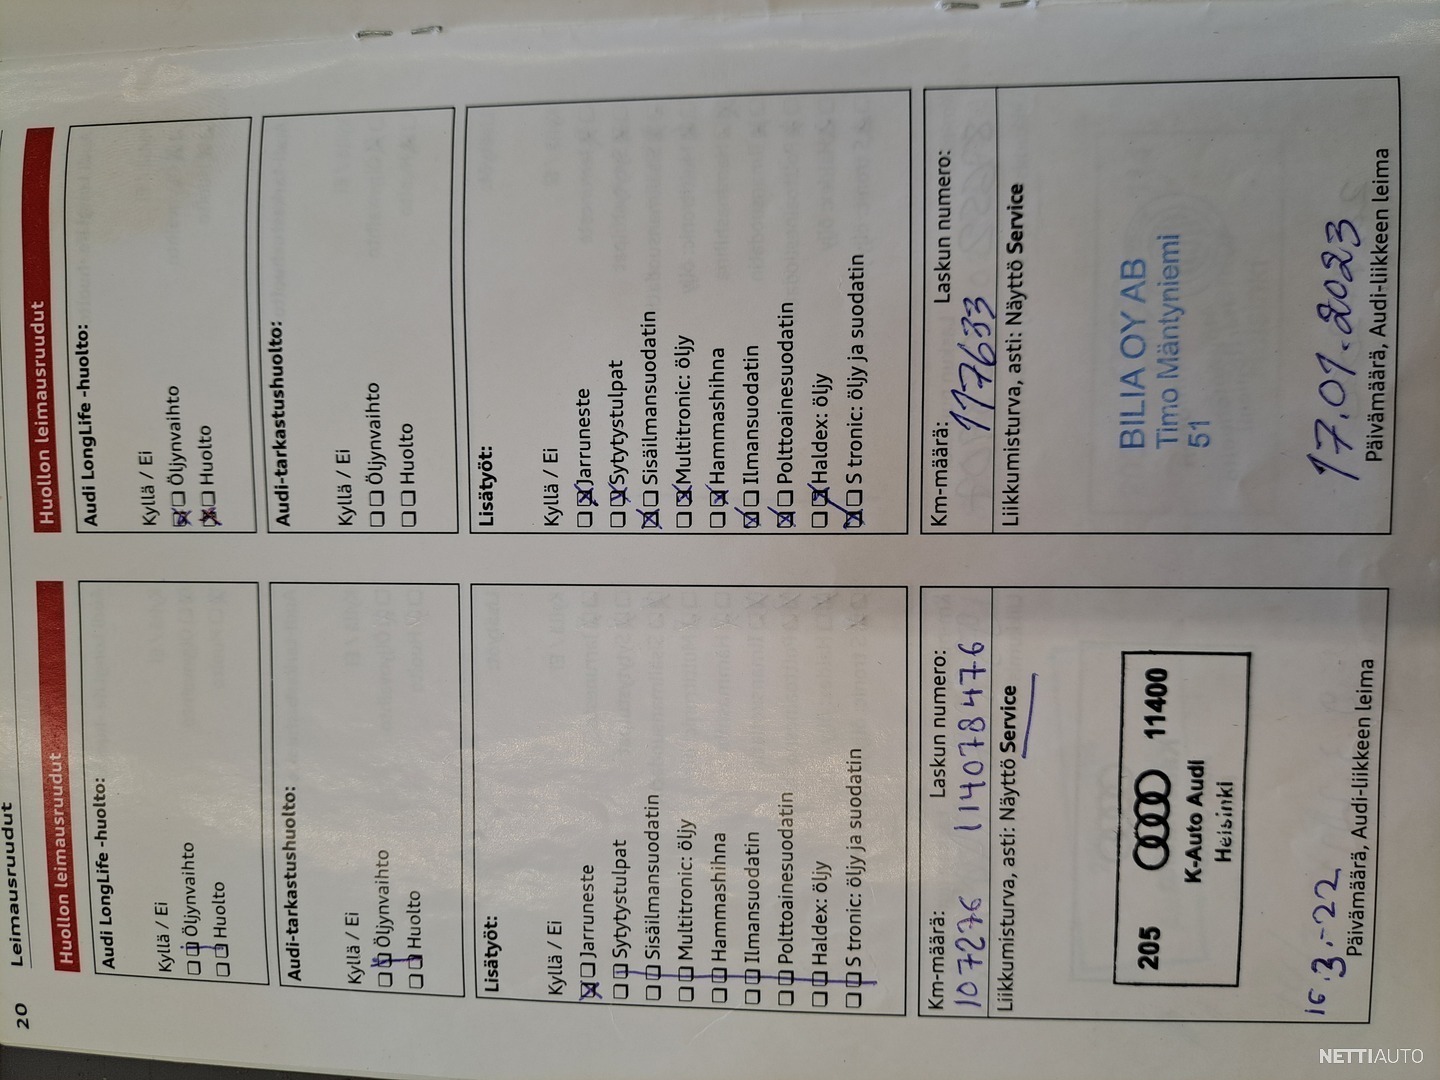 20 Leimausruudut
Huollon leimausruudut
Audi LongLife -huolto:
Kyllä / Ei
Öljynvaihto
Huolto
Audi-tarkastushuolto:
Kyllä / Ei
Öljynvaihto
Huolto
Lisätyöt:
Kyllä / Ei
Jarruneste
Sytytystulpat
Sisäilmansuodatin
Multitronic: öljy
Hammashihna
Ilmansuodatin
Polttoainesuodatin
Haldex: öljy
S tronic: öljy ja suodatin
Km-määrä: Laskun numero:
107276 114078476
Liikkumisturva, asti: Näyttö Service
205 11400
K-Auto Audi
Helsinki
16.3.-22
Päivämäärä, Audi-liikkeen leima
Huollon leimausruudut
Audi LongLife -huolto:
Kyllä / Ei
Öljynvaihto
Huolto
Audi-tarkastushuolto:
Kyllä / Ei
Öljynvaihto
Huolto
Lisätyöt:
Kyllä / Ei
Jarruneste
Sytytystulpat
Sisäilmansuodatin
Multitronic: öljy
Hammashihna
Ilmansuodatin
Polttoainesuodatin
Haldex: öljy
S tronic: öljy ja suodatin
Km-määrä: Laskun numero:
117633
Liikkumisturva, asti: Näyttö Service
BILIA OY AB
Timo Mäntyniemi
51
17.01.2023
Päivämäärä, Audi-liikkeen leima
NETTIAUTO